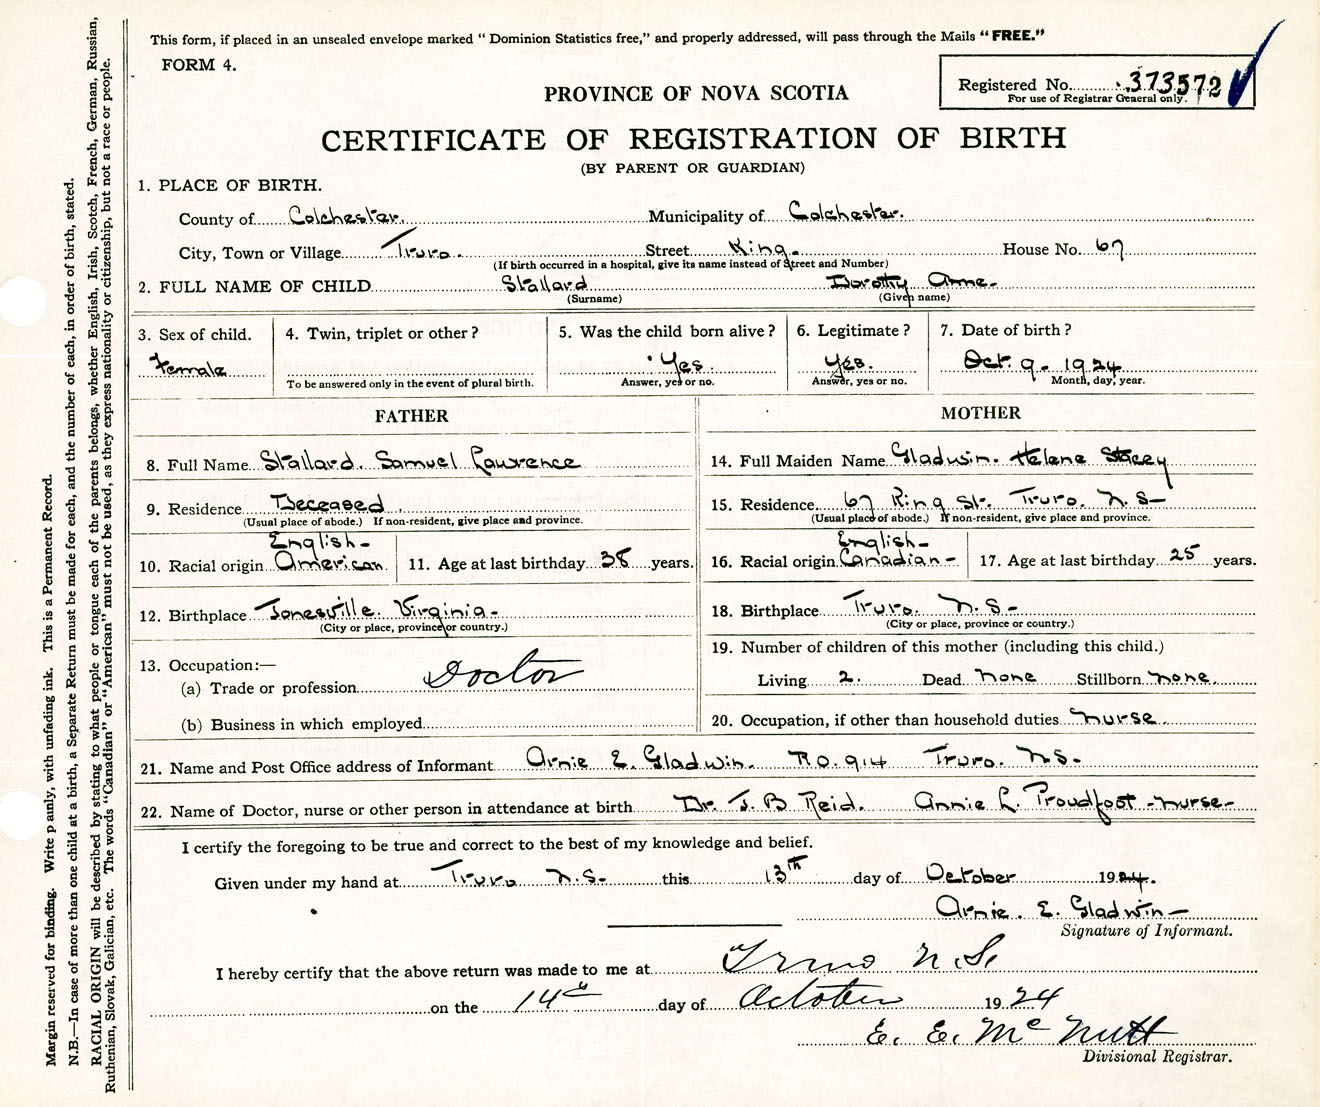 This form, if placed in an unsealed envelope marked “ Dominion Statistics free,” and properly addressed, will pass through the Mails “ FREE.”
FORM 4.
Registered No. 373572
For use of Registrar General only.
PROVINCE OF NOVA SCOTIA
CERTIFICATE OF REGISTRATION OF BIRTH
(BY PARENT OR GUARDIAN)
1. PLACE OF BIRTH.
County of Colchester. Municipality of Colchester.
City, Town or Village Truro. Street King. House No. 67
(If birth occurred in a hospital, give its name instead of Street and Number)
2. FULL NAME OF CHILD Stallard Dorothy Anne.
(Surname) (Given name)
3. Sex of child. Female
4. Twin, triplet or other ?
To be answered only in the event of plural birth.
5. Was the child born alive ? Yes
Answer, yes or no.
6. Legitimate ? Yes.
Answer, yes or no.
7. Date of birth ? Oct. 9. 1924
Month, day, year.
FATHER
8. Full Name Stallard. Samuel Lawrence
9. Residence Deceased
(Usual place of abode.) If non-resident, give place and province.
10. Racial origin English- American
11. Age at last birthday 38 years.
12. Birthplace Jonesville. Virginia-
(City or place, province or country.)
13. Occupation:—
(a) Trade or profession Doctor
(b) Business in which employed
MOTHER
14. Full Maiden Name Gladwin. Helene Stacey
15. Residence 67 King St. Truro. N.S-
(Usual place of abode.) If non-resident, give place and province.
16. Racial origin English- Canadian-
17. Age at last birthday 25 years.
18. Birthplace Truro. N.S-
(City or place, province or country.)
19. Number of children of this mother (including this child.)
Living 2. Dead None Stillborn None.
20. Occupation, if other than household duties Nurse
21. Name and Post Office address of Informant Arnie E. Gladwin. P.O. 914 Truro. N.S.
22. Name of Doctor, nurse or other person in attendance at birth Dr. J. B Reid. Annie L. Proudfoot -Nurse-
I certify the foregoing to be true and correct to the best of my knowledge and belief.
Given under my hand at Truro N.S. this 13th day of October 1924.
Arnie. E. Gladwin-
Signature of Informant.
I hereby certify that the above return was made to me at Truro N.S.
on the 14th day of October 1924
E. E. McNutt
Divisional Registrar.
Margin reserved for binding. Write p anly, with unfading ink. This is a Permanent Record.
N.B.—In case of more than one child at a birth, a Separate Return must be made for each, and the number of each, in order of birth, stated.
RACIAL ORIGIN will be described by stating to what people or tongue each of the parents belongs, whether English, Irish, Scotch, French, German, Russian,
Ruthenian, Slovak, Galician, etc. The words “Canadian” or “American” must not be used, as they express nationality or citizenship, but not a race or people.